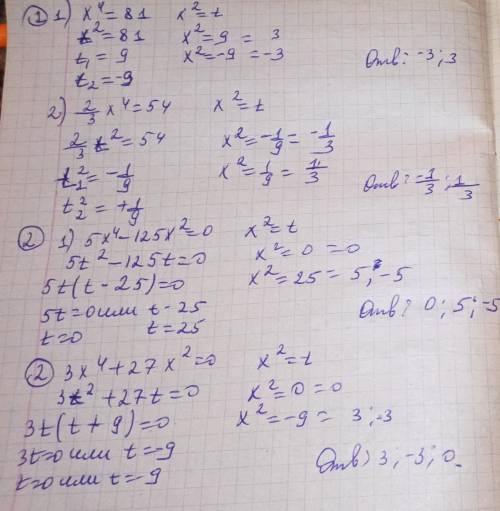 ① 1) x⁴=81 x²=t
t²=81 x²=9 = 3
t₁=9 x²=-9 = -3
t₂=-9 Отв: -3; 3
2) 2/3 x⁴=54 x²=t
2/3 t²=54 x²=-1/9 = -1/3
t²₁=-1/9 x²=1/9 = 1/3
t²₂=+1/9 Отв: -1/3; 1/3
② 1) 5x⁴-125x²=0 x²=t
5t²-125t=0 x²=0 =0
5t(t-25)=0 x²=25 = 5; -5
5t=0 или t-25 Отв: 0; 5; -5
t=0 t=25
② 3x⁴+27x²=0 x²=t
3t²+27t=0 x²=0=0
3t(t+9)=0 x²=-9 = 3;-3
3t=0 или t=-9 Отв: 3; -3; 0.
t=0 или t=-9